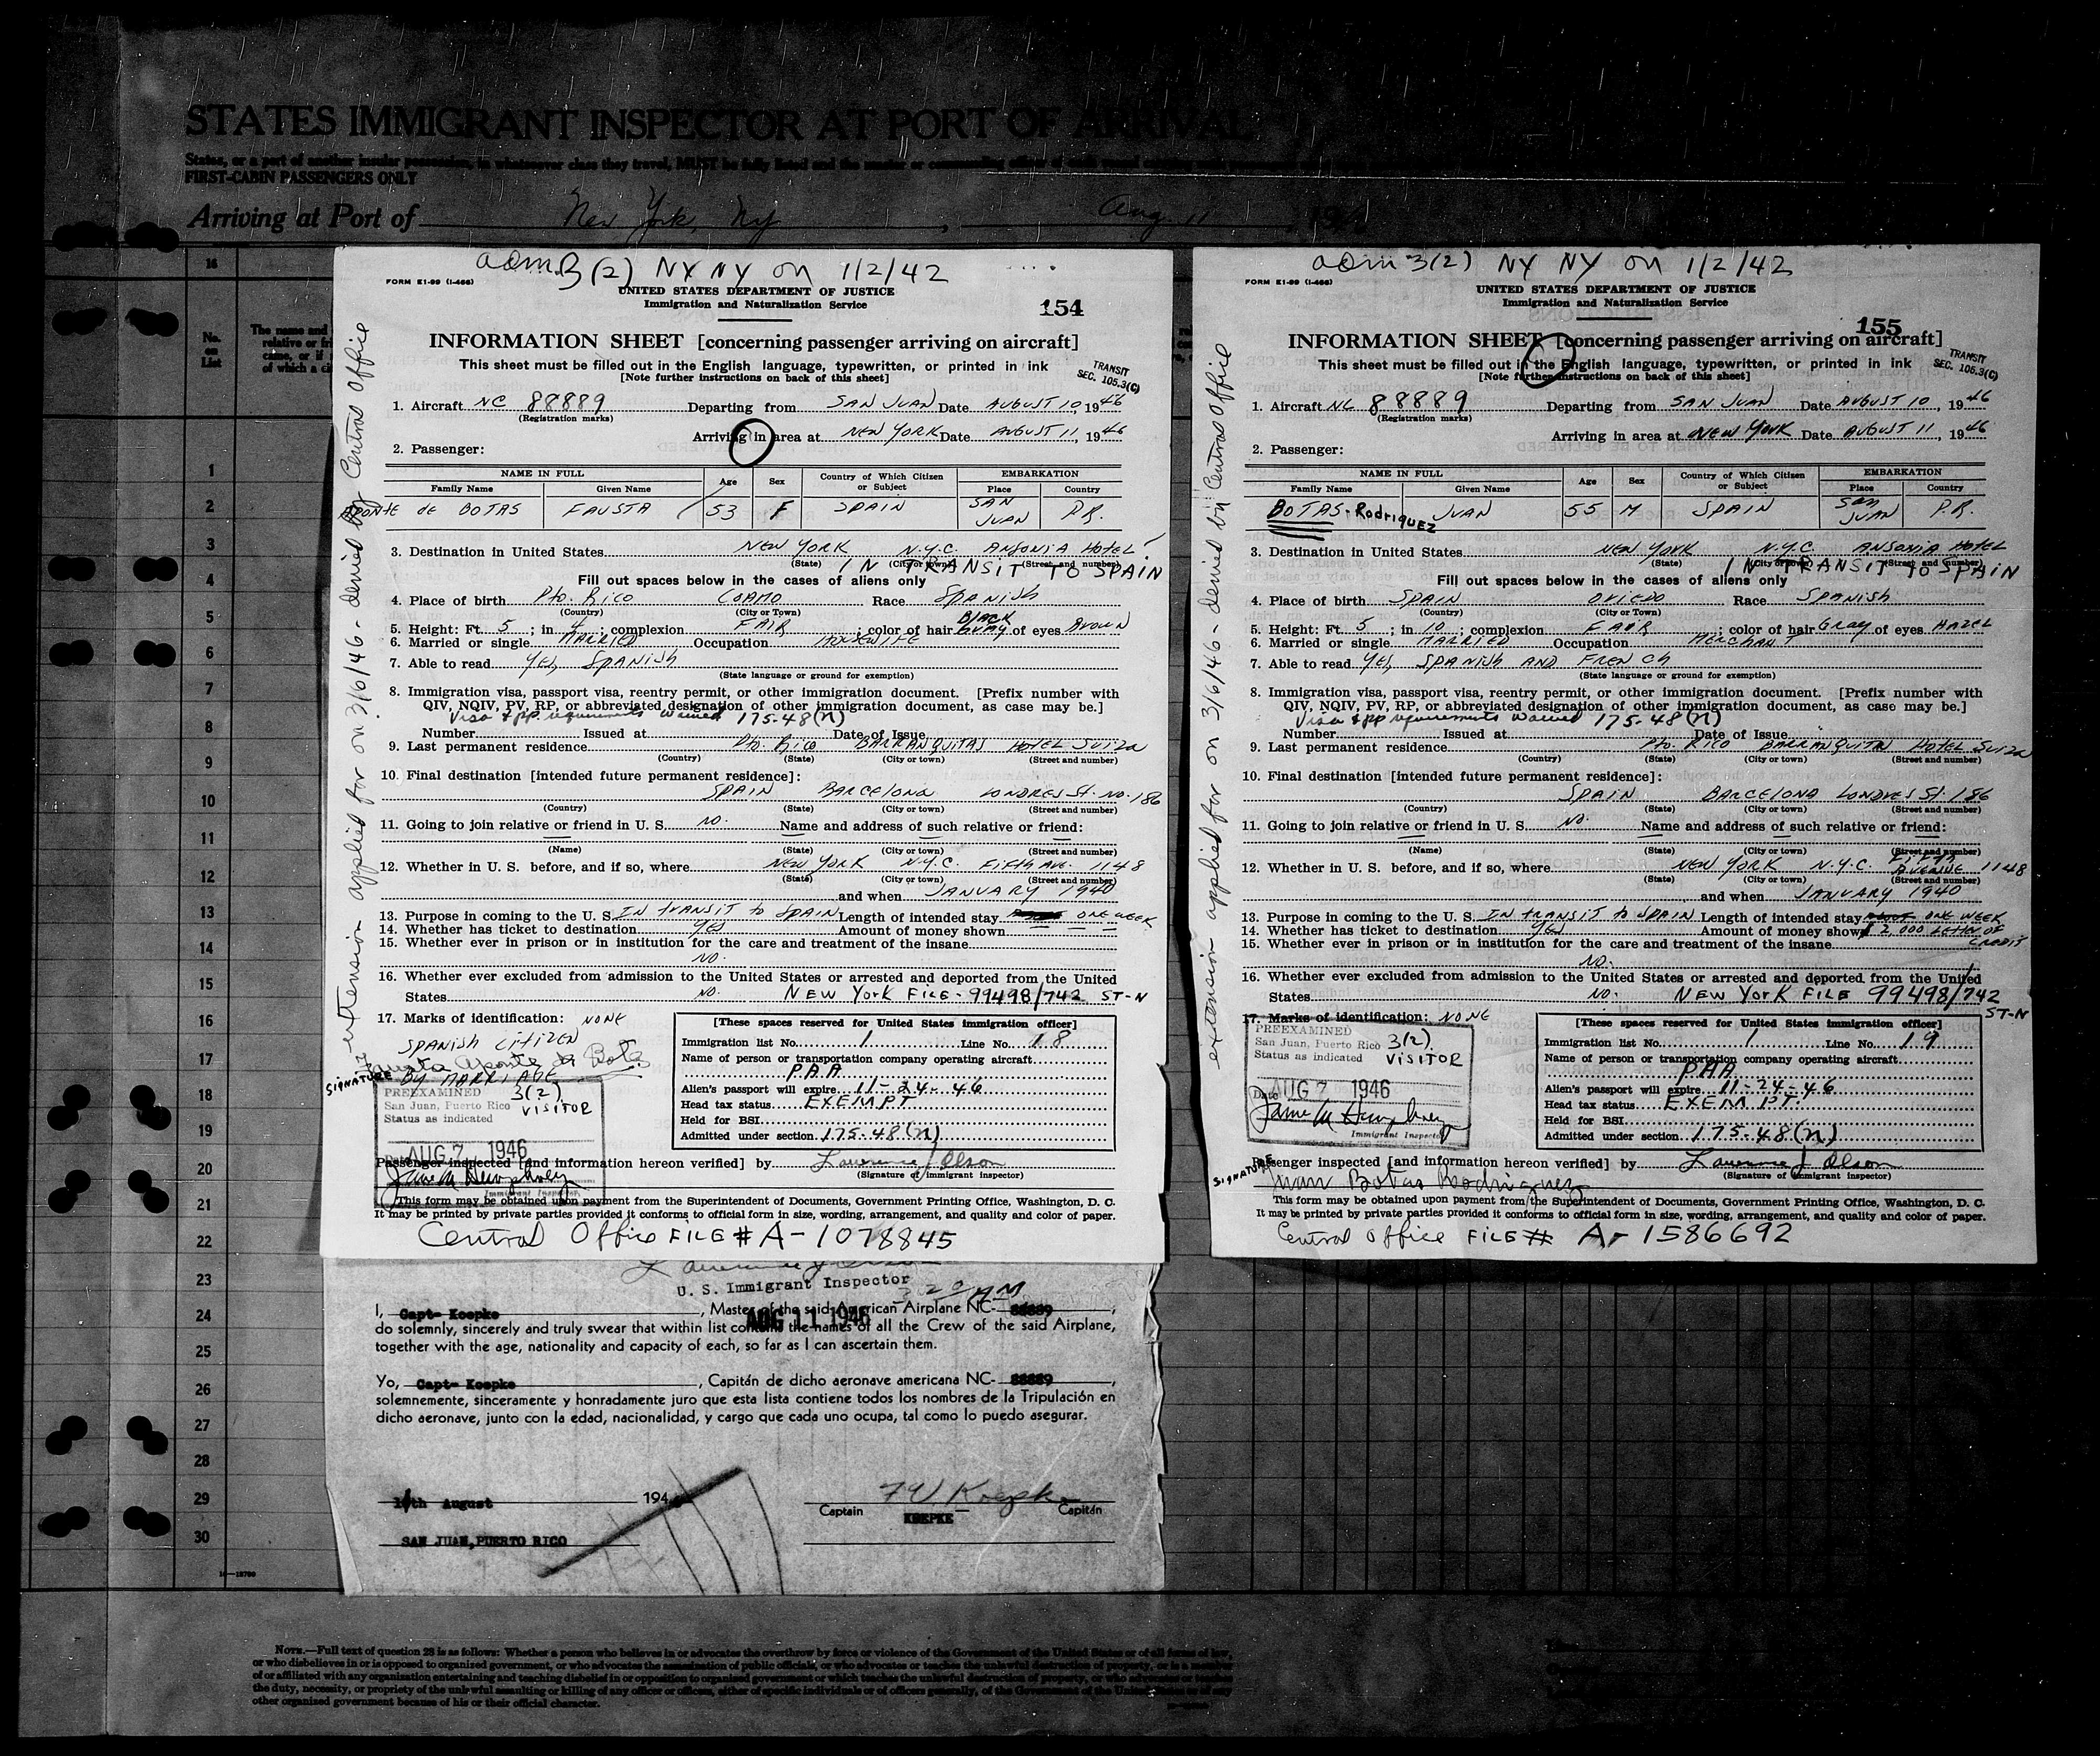 STATES IMMIGRANT INSPECTOR AT PORT OF ARRIVAL
States, or a part of another insular possession, in whatsoever class they travel, MUST be fully listed and the master or commanding officer of
FIRST-CABIN PASSENGERS ONLY
Arriving at Port of New York, Ny, Aug 11
No. on List
16
The name and
relative or fri
came, or if
of which a ci
1
2
3
4
5
6
7
8
9
10
11
12
13
14
15
16
17
18
19
20
21
22
23
24
25
26
27
28
29
30
adm. 3(2) NY NY on 1/2/42
FORM E1-99 (I-466)
UNITED STATES DEPARTMENT OF JUSTICE
Immigration and Naturalization Service
154
INFORMATION SHEET [concerning passenger arriving on aircraft]
This sheet must be filled out in the English language, typewritten, or printed in ink
[Note further instructions on back of this sheet]
TRANSIT
SEC. 105.3(C)
1. Aircraft NC 88889 Departing from SAN JUAN Date AUGUST 10, 1946
(Registration marks)
Arriving in area at NEW YORK Date AUGUST 11, 1946
2. Passenger:
NAME IN FULL Age Sex Country of Which Citizen or Subject EMBARKATION
Family Name Given Name Place Country
APONTE de BOTAS FAUSTA 53 F SPAIN SAN JUAN P.R.
3. Destination in United States NEW YORK N.Y.C. ANSONIA HOTEL
(State) (City or town) (Street and number)
IN TRANSIT TO SPAIN
Fill out spaces below in the cases of aliens only
4. Place of birth Pto. Rico COAMO Race SPANISH
(Country) (City or Town)
5. Height: Ft. 5; in 4; complexion FAIR; color of hair BLACK GRAY of eyes BROWN
6. Married or single MARRIED Occupation HOUSEWIFE
7. Able to read YES, SPANISH
(State language or ground for exemption)
8. Immigration visa, passport visa, reentry permit, or other immigration document. [Prefix number with
QIV, NQIV, PV, RP, or abbreviated designation of other immigration document, as case may be.]
Visa & pp. requirements waived 175-48(n)
Number Issued at Date of Issue
9. Last permanent residence Pto. Rico BARRANQUITAS HOTEL SUIZA
(Country) (State) (City or town) (Street and number)
10. Final destination [intended future permanent residence]:
SPAIN BARCELONA LONDRES St. No. 186
(Country) (State) (City or town) (Street and number)
11. Going to join relative or friend in U. S. NO. Name and address of such relative or friend:
(Name) (State) (City or town) (Street and number)
12. Whether in U. S. before, and if so, where NEW YORK N.Y.C. FIFTH AVE. 1148
(State) (City or town) (Street and number)
and when JANUARY 1940
13. Purpose in coming to the U. S. IN TRANSIT to SPAIN Length of intended stay ONE WEEK
14. Whether has ticket to destination YES Amount of money shown
15. Whether ever in prison or in institution for the care and treatment of the insane
NO.
16. Whether ever excluded from admission to the United States or arrested and deported from the United
States NO. NEW YORK FILE - 99498/742 ST-N
17. Marks of identification: NONE
SPANISH CITIZEN
Fausta Aponte de Botas
BY MARRIAGE
SIGNATURE
PREEXAMINED
San Juan, Puerto Rico 3(2)
Status as indicated VISITOR
Date AUG 7 1946
Immigrant Inspector
[These spaces reserved for United States immigration officer]
Immigration list No. 1 Line No. 18
Name of person or transportation company operating aircraft
PAA
Alien's passport will expire 11-24-46
Head tax status EXEMPT
Held for BSI
Admitted under section 175-48(n)
Passenger inspected [and information hereon verified] by Lawrence J Olson
(Signature of immigrant inspector)
This form may be obtained upon payment from the Superintendent of Documents, Government Printing Office, Washington, D. C.
It may be printed by private parties provided it conforms to official form in size, wording, arrangement, and quality and color of paper.
Central Office FILE # A-1078845
extension applied for on 3/6/46 - denied by Central Office
adm 3(2) NY NY on 1/2/42
FORM E1-99 (I-466)
UNITED STATES DEPARTMENT OF JUSTICE
Immigration and Naturalization Service
155
INFORMATION SHEET [concerning passenger arriving on aircraft]
This sheet must be filled out in the English language, typewritten, or printed in ink
[Note further instructions on back of this sheet]
TRANSIT
SEC. 105.3(C)
1. Aircraft NC 88889 Departing from SAN JUAN Date AUGUST 10, 1946
(Registration marks)
Arriving in area at NEW YORK Date AUGUST 11, 1946
2. Passenger:
NAME IN FULL Age Sex Country of Which Citizen or Subject EMBARKATION
Family Name Given Name Place Country
BOTAS-Rodriquez JUAN 55 M SPAIN SAN JUAN P.R.
3. Destination in United States NEW YORK N.Y.C. ANSONIA HOTEL
(State) (City or town) (Street and number)
IN TRANSIT TO SPAIN
Fill out spaces below in the cases of aliens only
4. Place of birth SPAIN OVIEDO Race SPANISH
(Country) (City or Town)
5. Height: Ft. 5; in 10; complexion FAIR; color of hair GRAY of eyes HAZEL
6. Married or single MARRIED Occupation MERCHANT
7. Able to read YES, SPANISH AND FRENCH
(State language or ground for exemption)
8. Immigration visa, passport visa, reentry permit, or other immigration document. [Prefix number with
QIV, NQIV, PV, RP, or abbreviated designation of other immigration document, as case may be.]
Visa & pp requirements waived 175-48(n)
Number Issued at Date of Issue
9. Last permanent residence Pto. RICO BARRANQUITA HOTEL SUIZA
(Country) (State) (City or town) (Street and number)
10. Final destination [intended future permanent residence]:
SPAIN BARCELONA LONDRES St. 186
(Country) (State) (City or town) (Street and number)
11. Going to join relative or friend in U. S. NO. Name and address of such relative or friend:
(Name) (State) (City or town) (Street and number)
12. Whether in U. S. before, and if so, where NEW YORK N.Y.C. FIFTH AVENUE 1148
(State) (City or town) (Street and number)
and when JANUARY 1940
13. Purpose in coming to the U. S. IN TRANSIT to SPAIN Length of intended stay ONE WEEK
14. Whether has ticket to destination YES Amount of money shown $2,000 LETTER OF CREDIT
15. Whether ever in prison or in institution for the care and treatment of the insane
NO.
16. Whether ever excluded from admission to the United States or arrested and deported from the United
States NO. NEW YORK FILE 99498/742 ST-N
17. Marks of identification: NONE
PREEXAMINED
San Juan, Puerto Rico 3(2)
Status as indicated VISITOR
Date AUG 7 1946
Immigrant Inspector
[These spaces reserved for United States immigration officer]
Immigration list No. 1 Line No. 19
Name of person or transportation company operating aircraft
PAA
Alien's passport will expire 11-24-46
Head tax status EXEMPT.
Held for BSI
Admitted under section 175-48(n)
Passenger inspected [and information hereon verified] by Lawrence J Olson
(Signature of immigrant inspector)
SIGNATURE
Juan Botas Rodriguez
This form may be obtained upon payment from the Superintendent of Documents, Government Printing Office, Washington, D. C.
It may be printed by private parties provided it conforms to official form in size, wording, arrangement, and quality and color of paper.
Central Office FILE # A-1586692
extension applied for on 3/6/46 - denied by Central Office
U. S. Immigrant Inspector
AUG 11 1946
I, Capt- Koepke, Master of the said American Airplane NC- 88889,
do solemnly, sincerely and truly swear that within list contains the names of all the Crew of the said Airplane,
together with the age, nationality and capacity of each, so far as I can ascertain them.
Yo, Capt- Koepke, Capitán de dicho aeronave americana NC- 88889,
solemnemente, sinceramente y honradamente juro que esta lista contiene todos los nombres de la Tripulación en
dicho aeronave, junto con la edad, nacionalidad, y cargo que cada uno ocupa, tal como lo puedo asegurar.
th August 194
Captain KOEPKE Capitán
SAN JUAN, PUERTO RICO
NOTE.—Full text of question 28 is as follows: Whether a person who believes in or advocates the overthrow by force or violence of the Government of the United States or of all forms of law,
or who disbelieves in or is opposed to organized government, or who advocates the assassination of public officials, or who advocates or teaches the unlawful destruction of property, or is a member
of or affiliated with any organization entertaining and teaching disbelief in or opposition to organized government or which teaches the unlawful destruction of property, or who advocates or teaches
the duty, necessity, or propriety of the unlawful assaulting or killing of any officer or officers, either of specific individuals or of officers generally, of the Government of the United States or of any
other organized government because of his or their official character.